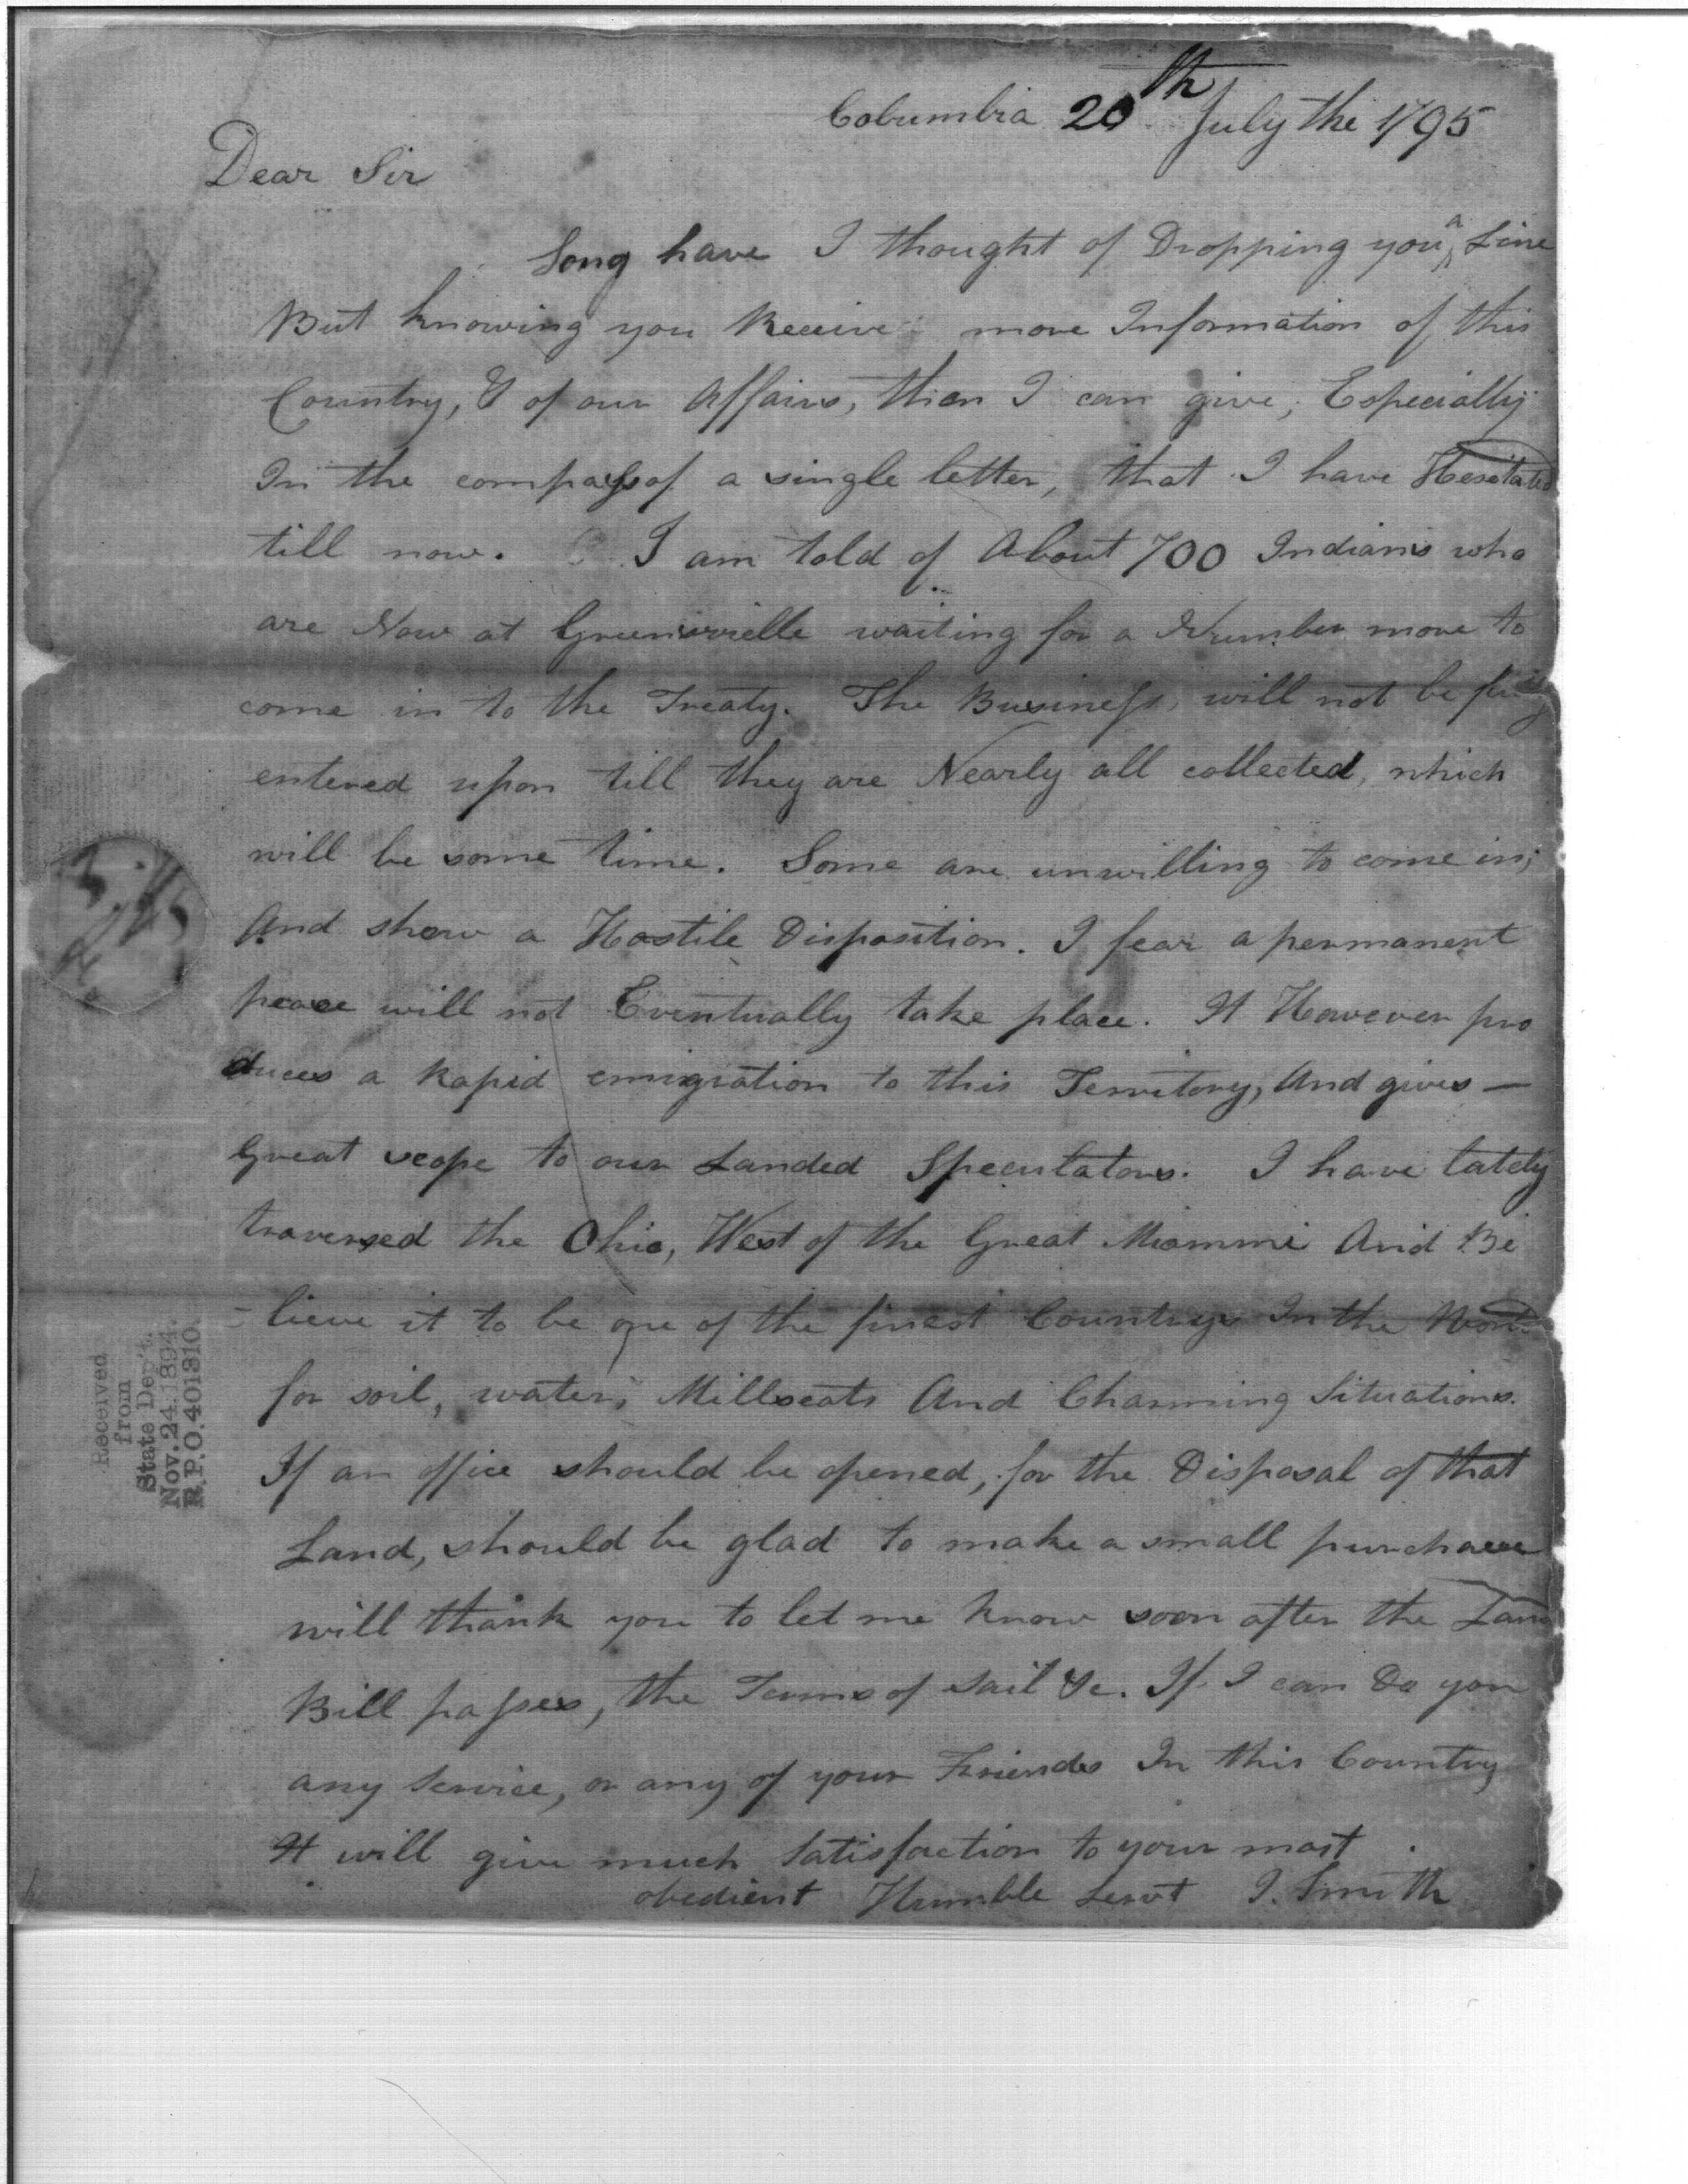 Columbia 20th July the 1795
Dear Sir
Long have I thought of Dropping you a Line
But knowing you Receive more Information of this
Country, & of our Affairs, then I can give, Especially
In the compass of a single letter, that I have Hesitated
till now. I am told of About 700 Indians who
are Now at Greensvielle waiting for a Number more to
come in to the Treaty. The Business, will not be fully
entered upon till they are Nearly all collected, which
will be some time. Some are unwilling to come in;
And show a Hostile Disposition. I fear a permanent
peace will not Eventually take place. It However pro
duces a Rapid emigration to this Territory, And gives —
Great scope to our Landed Speculators. I have lately
traversed the Ohio, West of the Great Miammi And Be
- lieve it to be one of the finest Countrys In the World
for soil, water, Millseats And Charming Situations.
If an office should be opened, for the Disposal of that
Land, should be glad to make a small purchase
will thank you to let me know soon after the Land
Bill passes, the Terms of Sail &c. If I can Do you
any Service, or any of your Friends In this Country
It will give much Satisfaction to your most
obedient Humble Servt J. Smith
Received
from
State Dep't.
Nov. 24. 1894.
R.P.O. 401310.